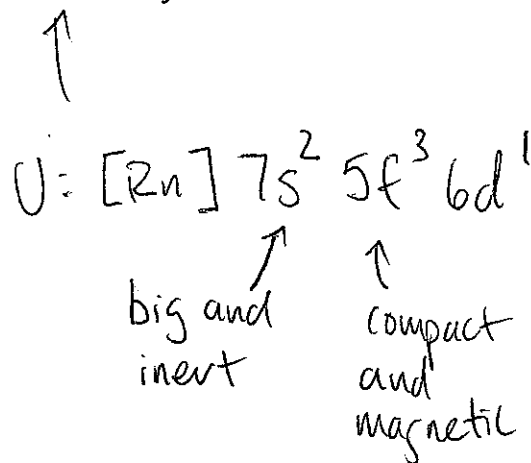 U: [Rn] 7s² 5f³ 6d¹
big and
inert
compact
and
magnetic